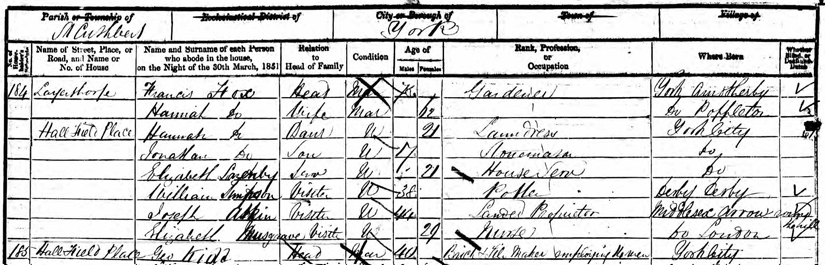 Parish or Township of Ecclesiastical District of City or Borough of Town of Village of
St Cuthbert York
No. of House- holder's Schedule Name of Street, Place, or Road, and Name or No. of House Name and Surname of each Person who abode in the house, on the Night of the 30th March, 1851 Relation to Head of Family Condition Age of Males Females Rank, Profession, or Occupation Where Born Whether Blind, or Deaf-and-Dumb
184 Layerthorpe Francis Head Mar Gardener York
Hannah Do Wife Mar 62 Do Poppleton
Hall Field Place Hannah Do Daur U 21 Laundress York City
Jonathan Do Son U 17 Stonemason Do
Elizabeth Serv U 21 House Serv Do
William Simpson Visitr U 38 Potter Derby Derby
Joseph Visitr U 44 Landed Proprietor Middlesex
Elizabeth Musgrave Visitr U 29 Nurse Do London
185 Hall Field Place Geo Kidd Head Mar 40 Brick & Tile Maker employing Men York City